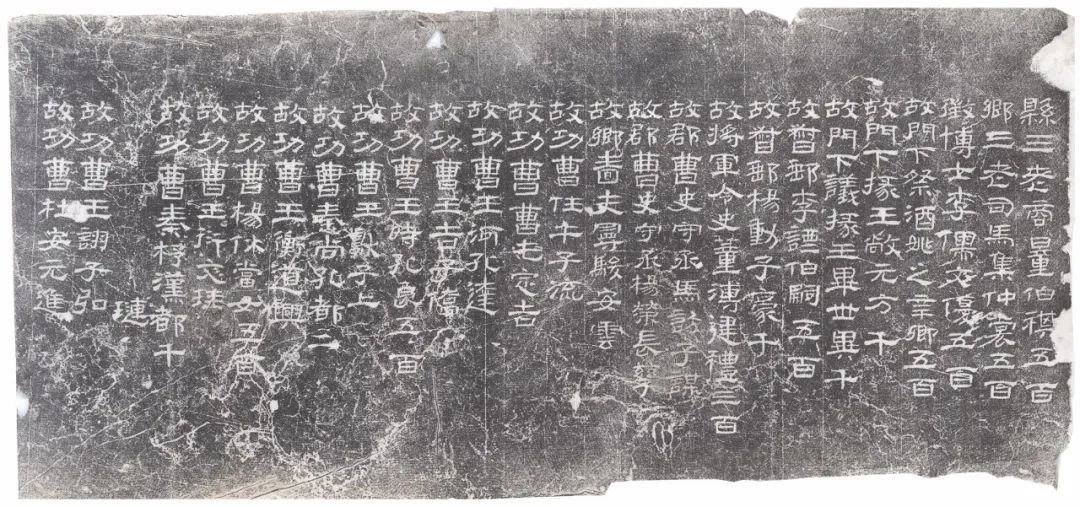 縣三老商量伯祺五百
鄉三老司馬集仲裳五百
徵博士李儒文優五百
故門下祭酒姚之辛卿五百
故門下掾王敞元方千
故門下議掾王畢世異千
故督郵李諲伯嗣五百
故督郵楊動子豪千
故將軍令史董溥建禮三百
故郡曹史守丞馬訪子謀
故郡曹史守丞楊榮長孳
故鄉嗇夫曼駿安雲
故功曹任午子流
故功曹曹屯定吉
故功曹王河孔達
故功曹王吉子僑
故功曹王時孔良五百
故功曹王獻子上
故功曹秦尚孔都二
故功曹王衡道興
故功曹楊休當女五百
故功曹王衍文珪
故功曹秦杼漢都千
琟
故功曹王詡子弘
故功曹杜安元進